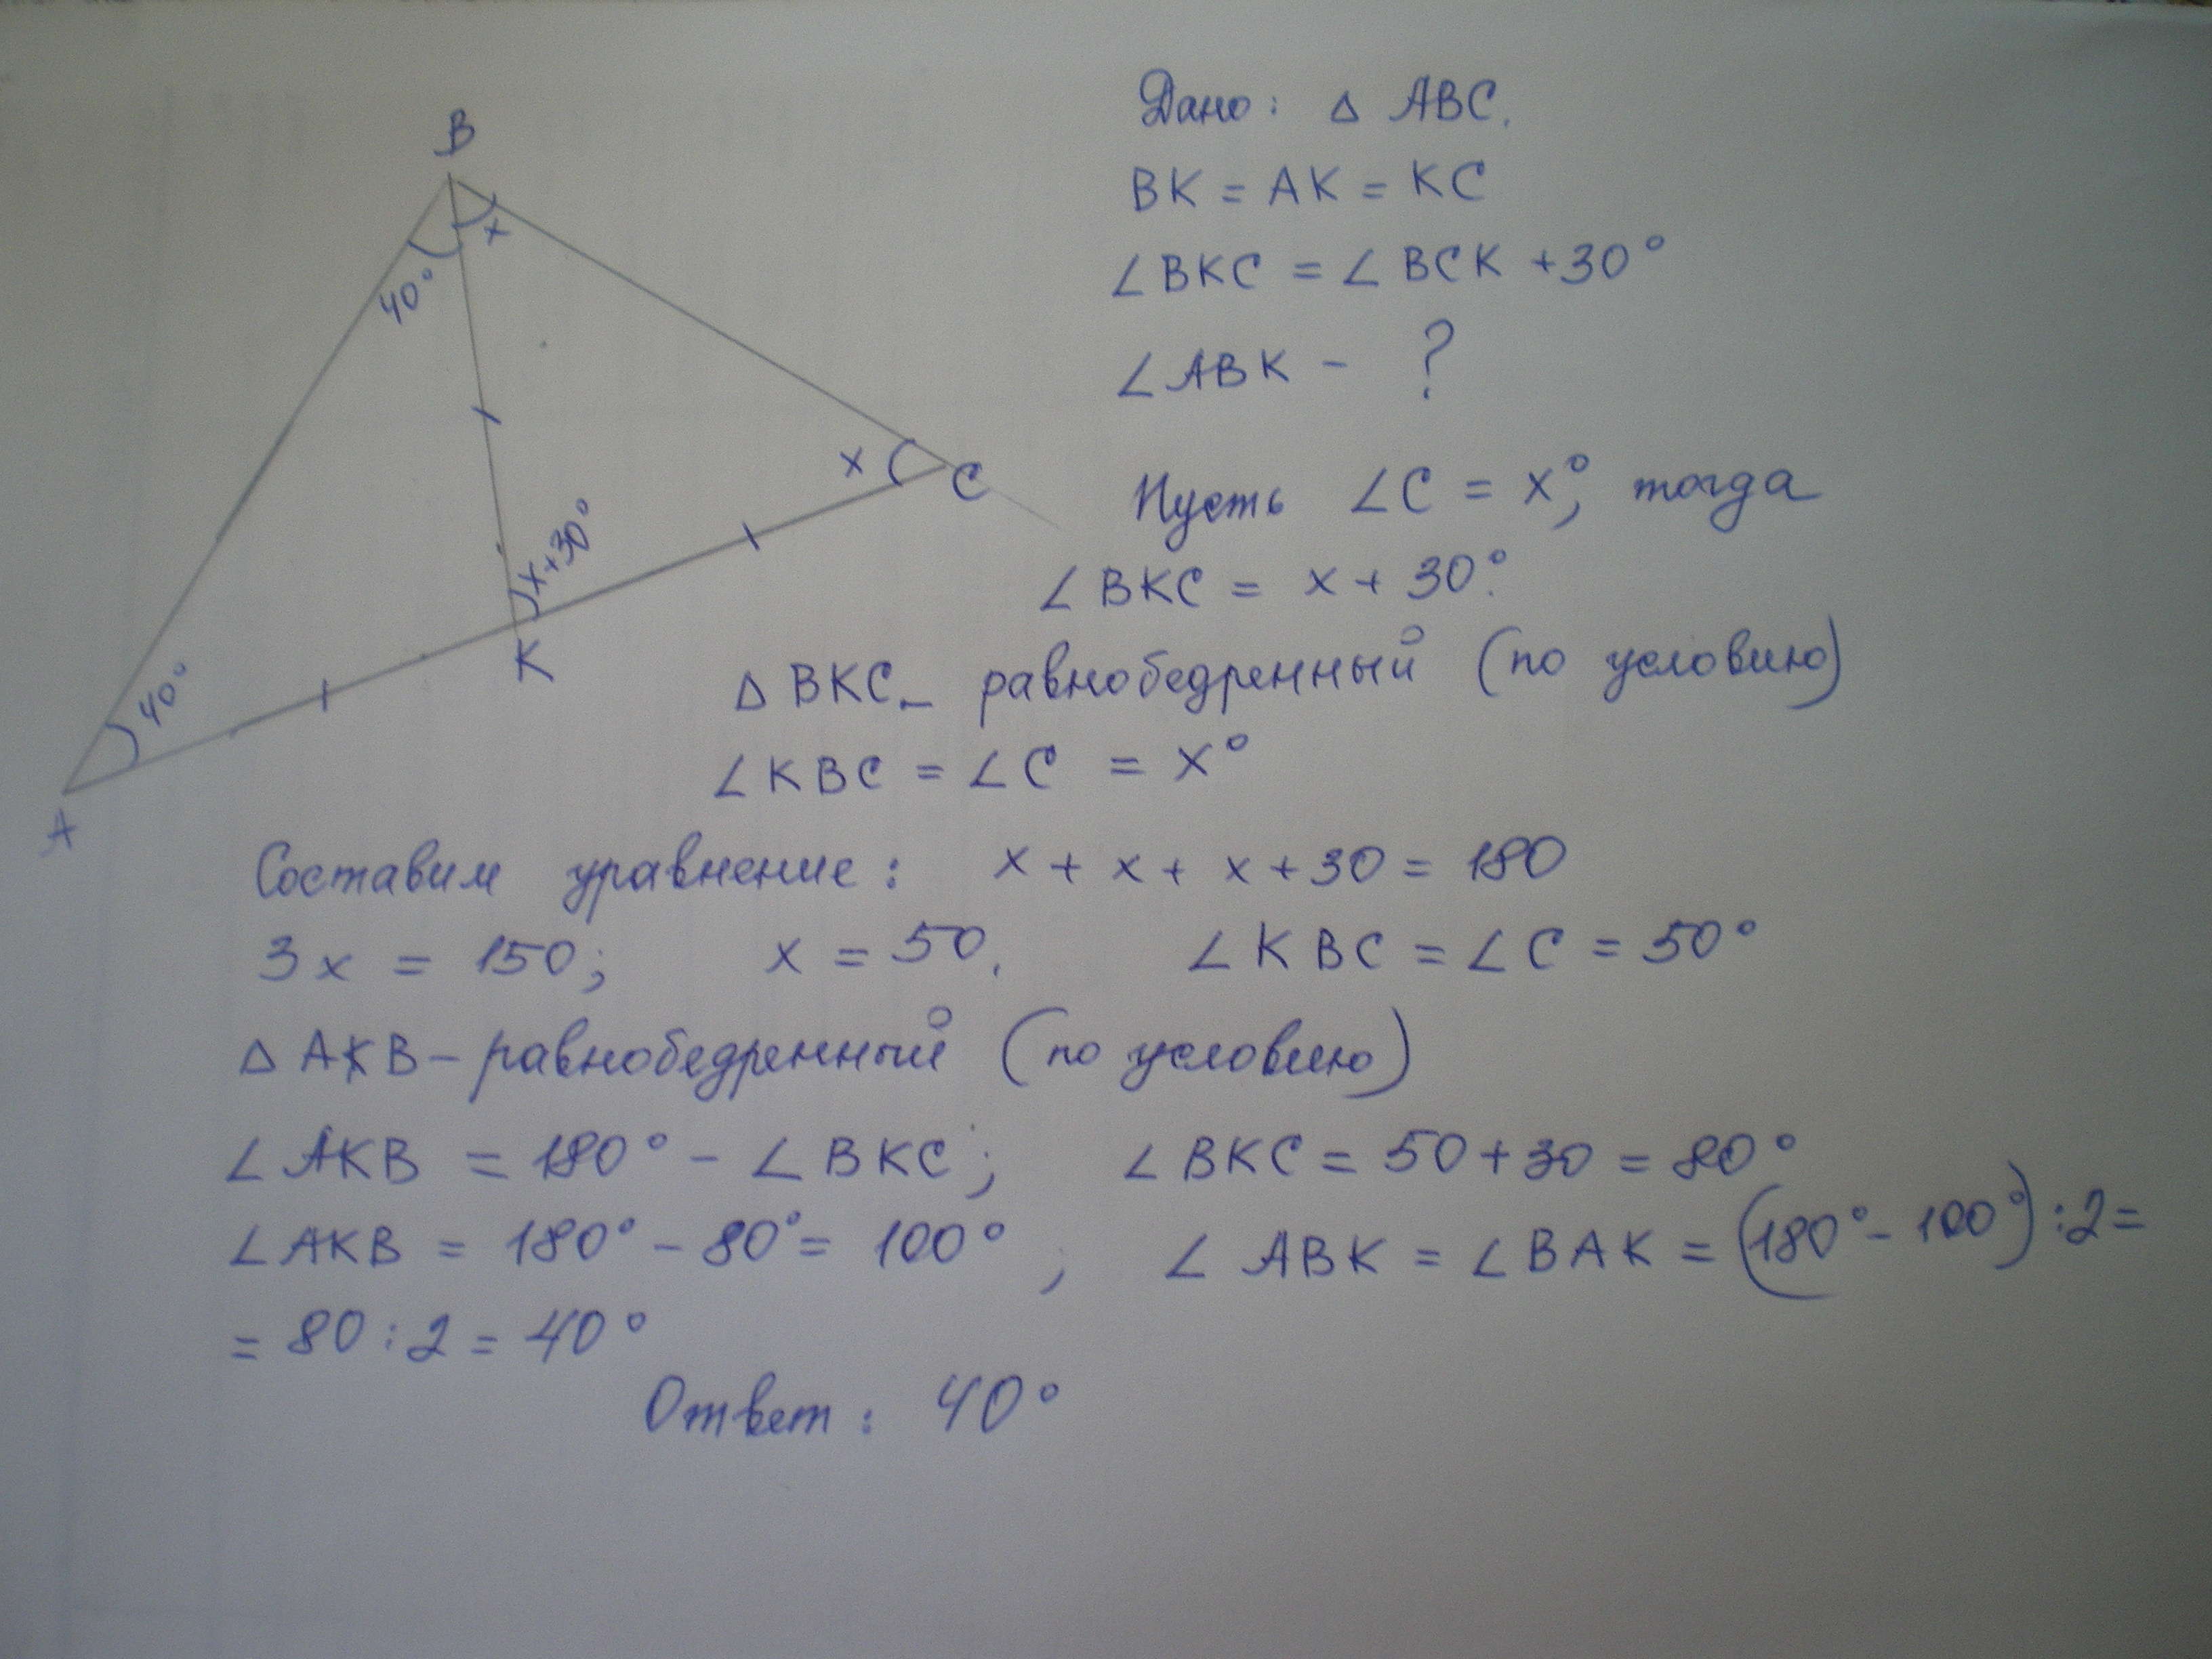 B
40°
x
x
C
x+30°
K
40°
A
Дано: Δ ABC.
BK = AK = KC
∠BKC = ∠BCK +30°
∠ABK - ?
Пусть ∠C = x°, тогда
∠BKC = x + 30°.
Δ BKC - равнобедренный (по условию)
∠KBC = ∠C = x°
Составим уравнение: x + x + x + 30 = 180
3x = 150; x = 50. ∠KBC = ∠C = 50°
Δ AKB - равнобедренный (по условию)
∠AKB = 180° - ∠BKC; ∠BKC = 50+30 = 80°
∠AKB = 180° - 80° = 100°; ∠ABK = ∠BAK = (180° - 100°) : 2 =
= 80 : 2 = 40°
Ответ: 40°